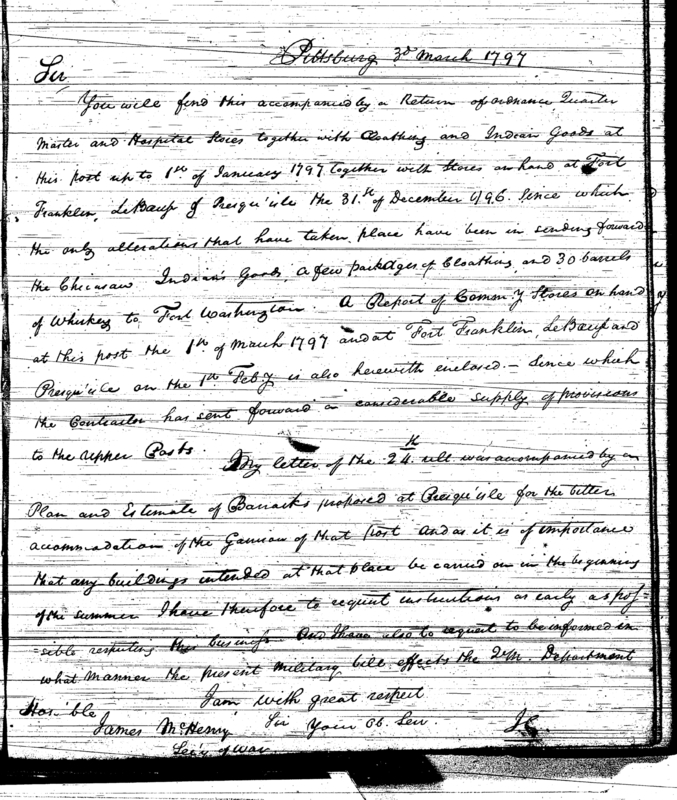 Pittsburg 3d March 1797
Sir,
You will find this accompanied by a Return of ordnance Quarter
Master and Hospital Stores together with Cloathing and Indian Goods at
this post up to 1st of January 1797 together with Stores on hand at Fort
Franklin, LeBauf & Presqu'isle the 31.st of December 1796. Since which
the only alterations that have taken place have been in sending forward
the Chicasaw Indian's Goods, a few packages of Cloathing and 30 barrels
of Whiskey to Fort Washington. A Report of Comm.y Stores on hand
at this post the 1st. of March 1797 and at Fort Franklin, LeBauf and
Presqu'isle on the 1st Feb.y is also herewith enclosed. – Since which
the Contractor has sent forward a considerable supply of provisions
to the upper Posts. My letter of the 24.th ult. was accompanied by a
Plan and Estimate of Barracks proposed at Presqu'isle for the better
accommodation of the Garrison of that post And as it is of importance
that any buildings intended at that place be carried on in the beginning
of the summer I have therefore to request instructions as early as pos=
=sible respecting this business And I have also to request to be informed in
what manner the present military bill effects the Q.M. Department
I am with great respect
Hon'ble
Sir Your Ob. Ser.
James McHenry
Sec'y of War